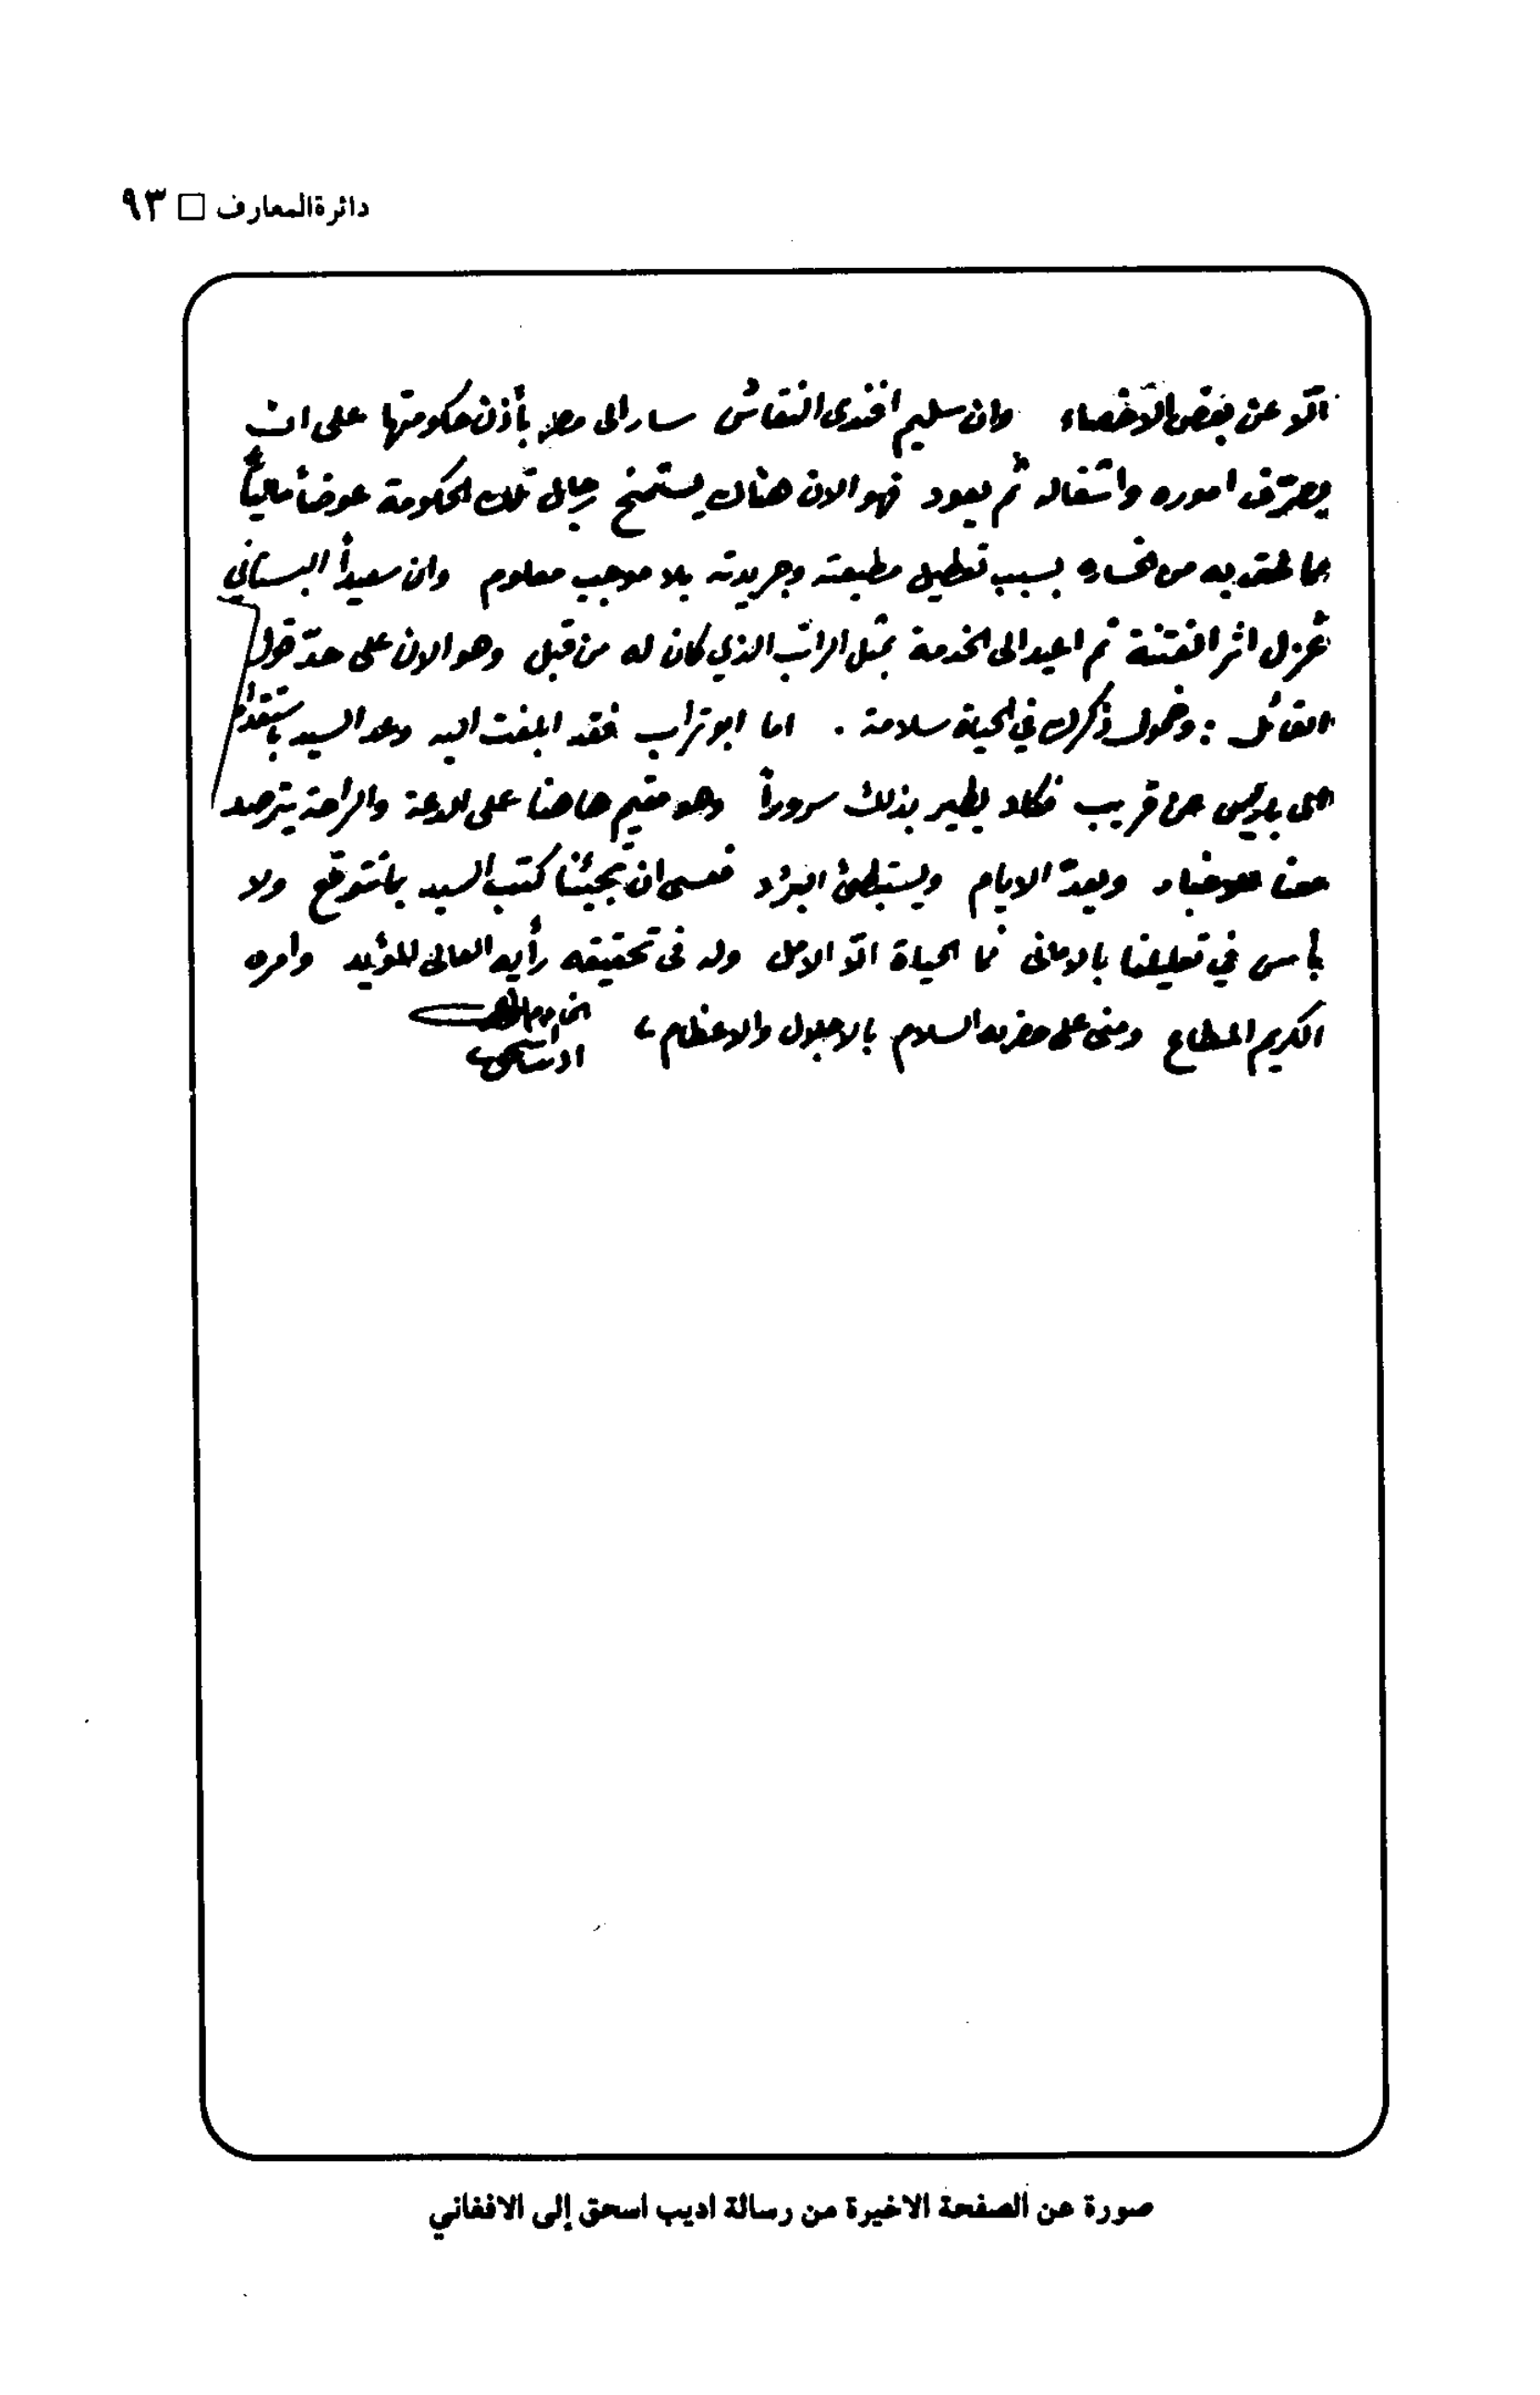 دائرة المعارف □ ٩٣
الّا عن بعض الاخصاء وان سليم افندى النقاش سار الى مصر بأذن حكومتها على ان
يصرّف اموره واشغاله ثم يعود فهو الان هناك يستمنح رجال تلك الحكومة عوضاً مالياً
عما لحق به من الخساره بسبب تعطيل مطبعته وجريدته بلا موجب معلوم وان سعيداً البستاني
عُزل اثر الفتنة ثم اعيد الى الخدمة بمثل الراتب الذي كان له من قبل وهو الان على حدّ قول
القائل : وخمول ذكرك في الحياة سلامة . اما ابو تراب فقد ابلغت اليه وعد السيد باستقدامه
الى باريس عن قريب فكاد يطير بذلك سروراً وهو مقيم هاهنا على الدعة والراحة يترصد
معنا الاخبار ويعدّ الايام ويستبطئ البرُد فعسى ان تجيئنا كتب السيد بالمتوقع ولا
بأس في تعليلنا بالامانى فما الحياة الّا الامل وله فى تحقيقه رأيه العالى المؤيد وامره
الكريم المطاع ومنى على حضرته السلام بالاجلال والاعظام
اديب اسحق
صورة عن الصفحة الاخيرة من رسالة اديب اسحق إلى الافغاني